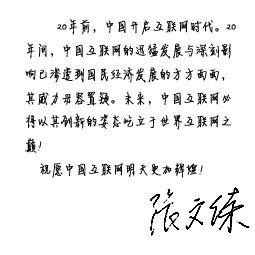 20年前，中国开启互联网时代。20
年间，中国互联网的迅猛发展与深刻影
响已渗透到国民经济发展的方方面面，
其威力毋容置疑。未来，中国互联网必
将以其创新的姿态屹立于世界互联网之
巅！
祝愿中国互联网明天更加辉煌！
张文练